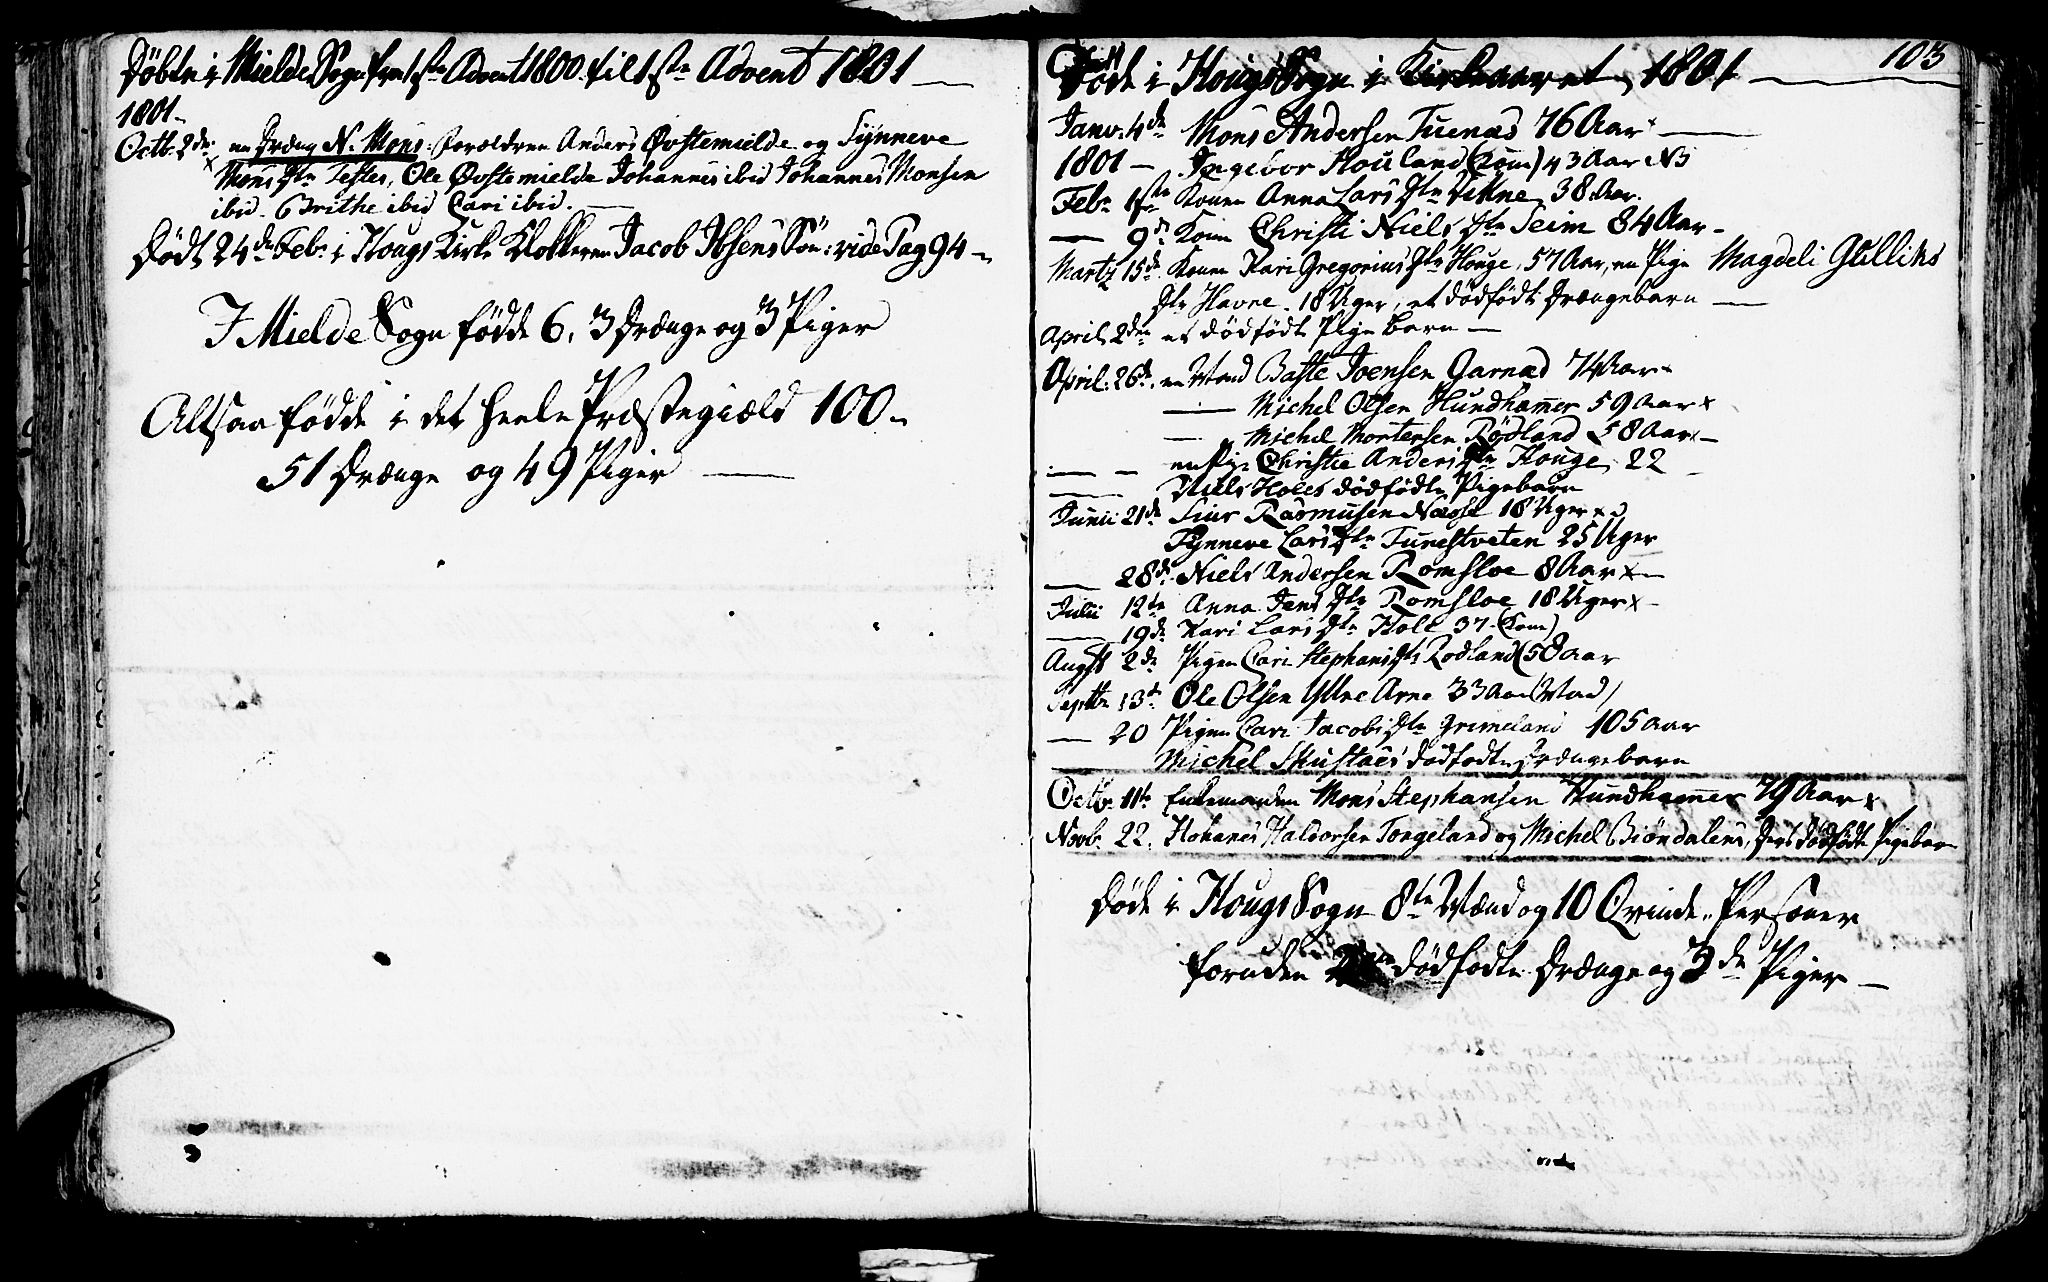 Døbte i Mielde Sogn fra 1ste Advent 1800 til 1ste Advent 1801
1801
Octb. 2de en Dreng N. Mons. Forældren Anders Øvstemielde og Synneve
Mons Dtr Testes, Ole Øvstemielde Johannes ibid Johannes Monsen
ibid. Brithe ibid Cari ibid.
Dødt 24de Febr. i Hougs Kirke Klokkeren Jacob Ibsens Søn: vide Pag 94
I Mielde Sogn fødde 6, 3 Drænge og 3 Piger
Altsaa fødde i det heele Præstegield 100
51 Drænge og 49 Piger
103
Døde i Hougs Sogn i Kirkeaaret 1801
Janv. 4de Mons Andersen Tuenæs 76 Aar
1801 – Ingebor Houland (Kone) 43 Aar
Febr. 1ste Konen Anna Lars Dtr Vikne 38 Aar.
9de Kone Christi Niels Dtr Seim 84 Aar
Martz 15de Konen Kari Gregorius Dtr Houge, 57 Aar, en Pige Magdeli Gulliks
Dtr Havne 18 Uger, et dødfødt Drængebarn
April 2den et dødfødt Pige Barn
April 26de en Mand Baste Joensen Garnæs 74 Aar
Michel Olsen Hundhammer 59 Aar
Michel Mortensen Rødland 58 Aar
en Pige Christie Anders Dtr Houge 22
Niels Holes dødfødte Pigebarn
Junii 21de Siur Rasmusen Næsse 18 Uger
Synneve Lars Dtr Tunestveten 25 Uger
28de Niels Andersen Romsloe 8 Aar
Julii 12te Anna Jens Dtr Romsloe 18 Uger
19de Kari Lars Dtr Hole 37 (Kone)
Augst 2de Pigen Cari Stephans Dtr Rodland (58 Aar
Septbr 13de Ole Olsen Yttre Arne 33 Aar (Mand)
20 Pigen Cari Jacobs Dtr Grimeland 105 Aar
Michel Skustæes dødfødte Drængebarn
Octb. 11te Enkemanden Mons Stephansen Hundhammer 79 Aar
Novb. 22. Johanes Haldorsen Tongeland og Michel Biøndalens dødfødte Pigebarn
Døde i Hougs Sogn 8te Mænd og 10 Qvinde-Personer
foruden dødfødte Drænge og 3de Piger